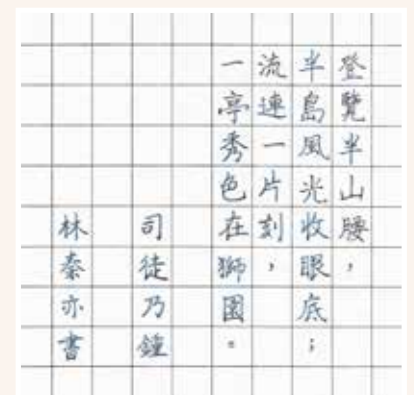 登覽半山腰，
半島風光收眼底；
流連一片刻，
一亭秀色在獅園。
司徒乃鍾
林秦亦書